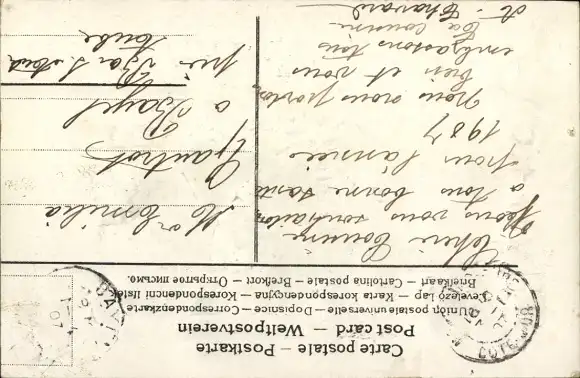 Carte postale – Postkarte
Post card – Weltpostverein
Union postale universelle – Dopisnice – Correspondenzkarte
Levelező Lap – Karta korespondencyjna – Korespondenčni listek
Briefkaart – Cartolina postale – Brefkort – Открытое письмо.
Chère Cousine
Nous vous souhaitons
a tous bonne santé
pour l'année
1907
nous nous portons
bien et vous
embrassons tous
Ta cousine
A.
Emilia
Gautrot
a Bayel
près Bar s Aube
Aube
COTE-D'OR
07